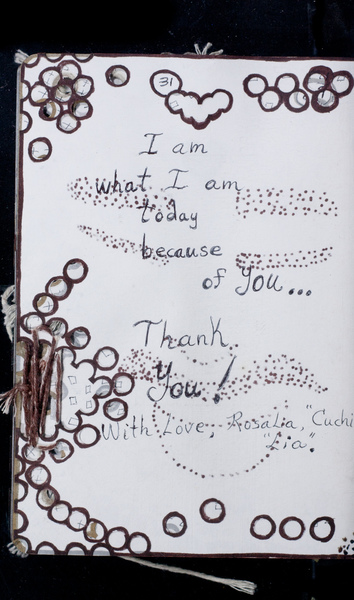 31
I am
what I am
today
because
of you...
Thank
You!
With Love, Rosalia, "Cuchi
"Lia".